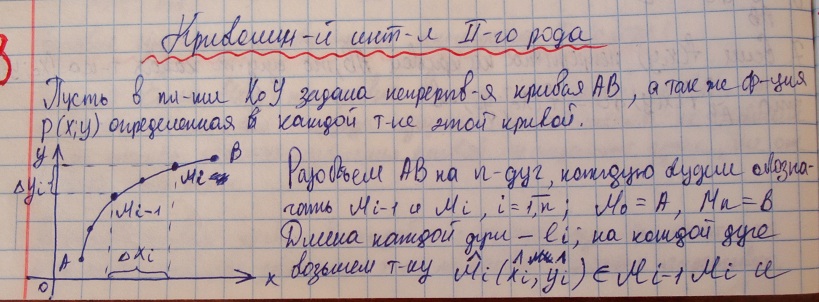 Криволин-й инт-л II-го рода
Пусть в пл-ти XoY задана непрерыв-я кривая AB, а так же ф-ция
P(x;y) определенная в каждой т-ке этой кривой.
y
B
Δyi
Mi
Mi-1
A
Δxi
0
x
Разобьем AB на n-дуг, каждую будем обозна-
чать Mi-1 и Mi, i=1,n; M0=A, Mn=B
Длина каждой дуги – li; на каждой дуге
возьмем т-ку M̂i(x̂i, ŷi) ∈ Mi-1 Mi и